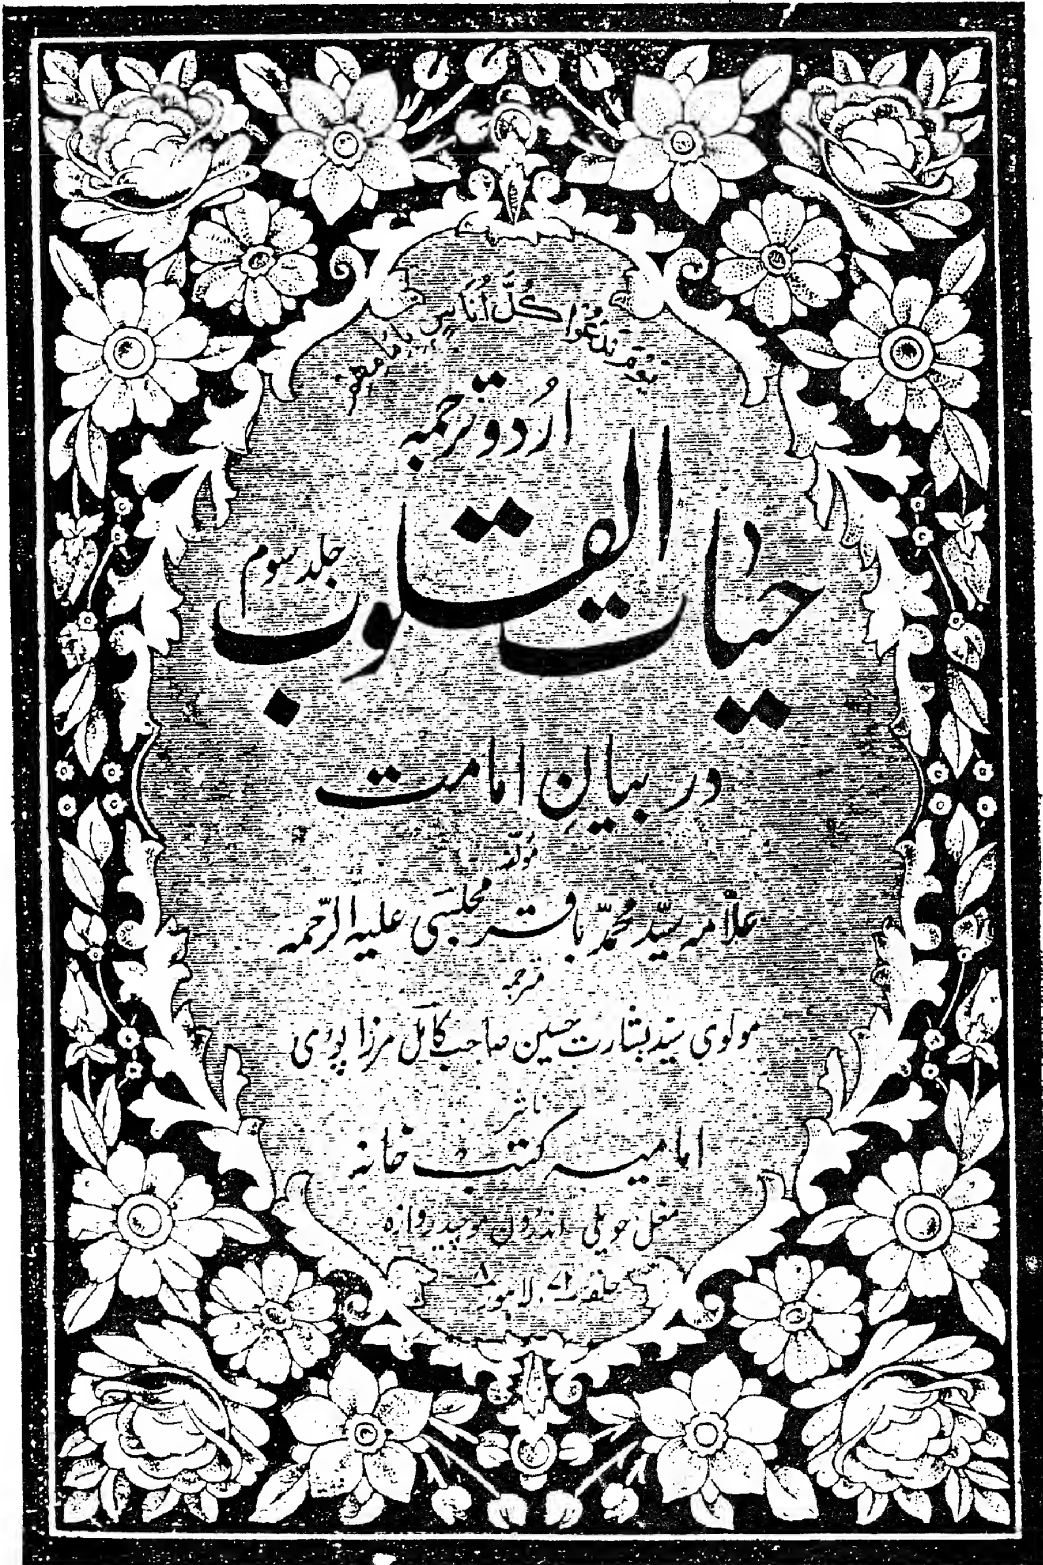 یَوْمَ نَدْعُوْا کُلَّ اُنَاسٍ بِاِمَامِهِمْ
اُردو ترجمہ
حیات القلوب
جلد سوم
در بیانِ امامت
مؤلفہ
علّامہ سیّد محمّد باقر مجلسی علیہ الرّحمہ
مترجمہ
مولوی سیّد بشارت حسین صاحب کامل مرزا پوری
ناشر
امامیہ کتب خانہ
مغل حویلی اندرون موچیدروازہ
حلقہ لاہور ۸